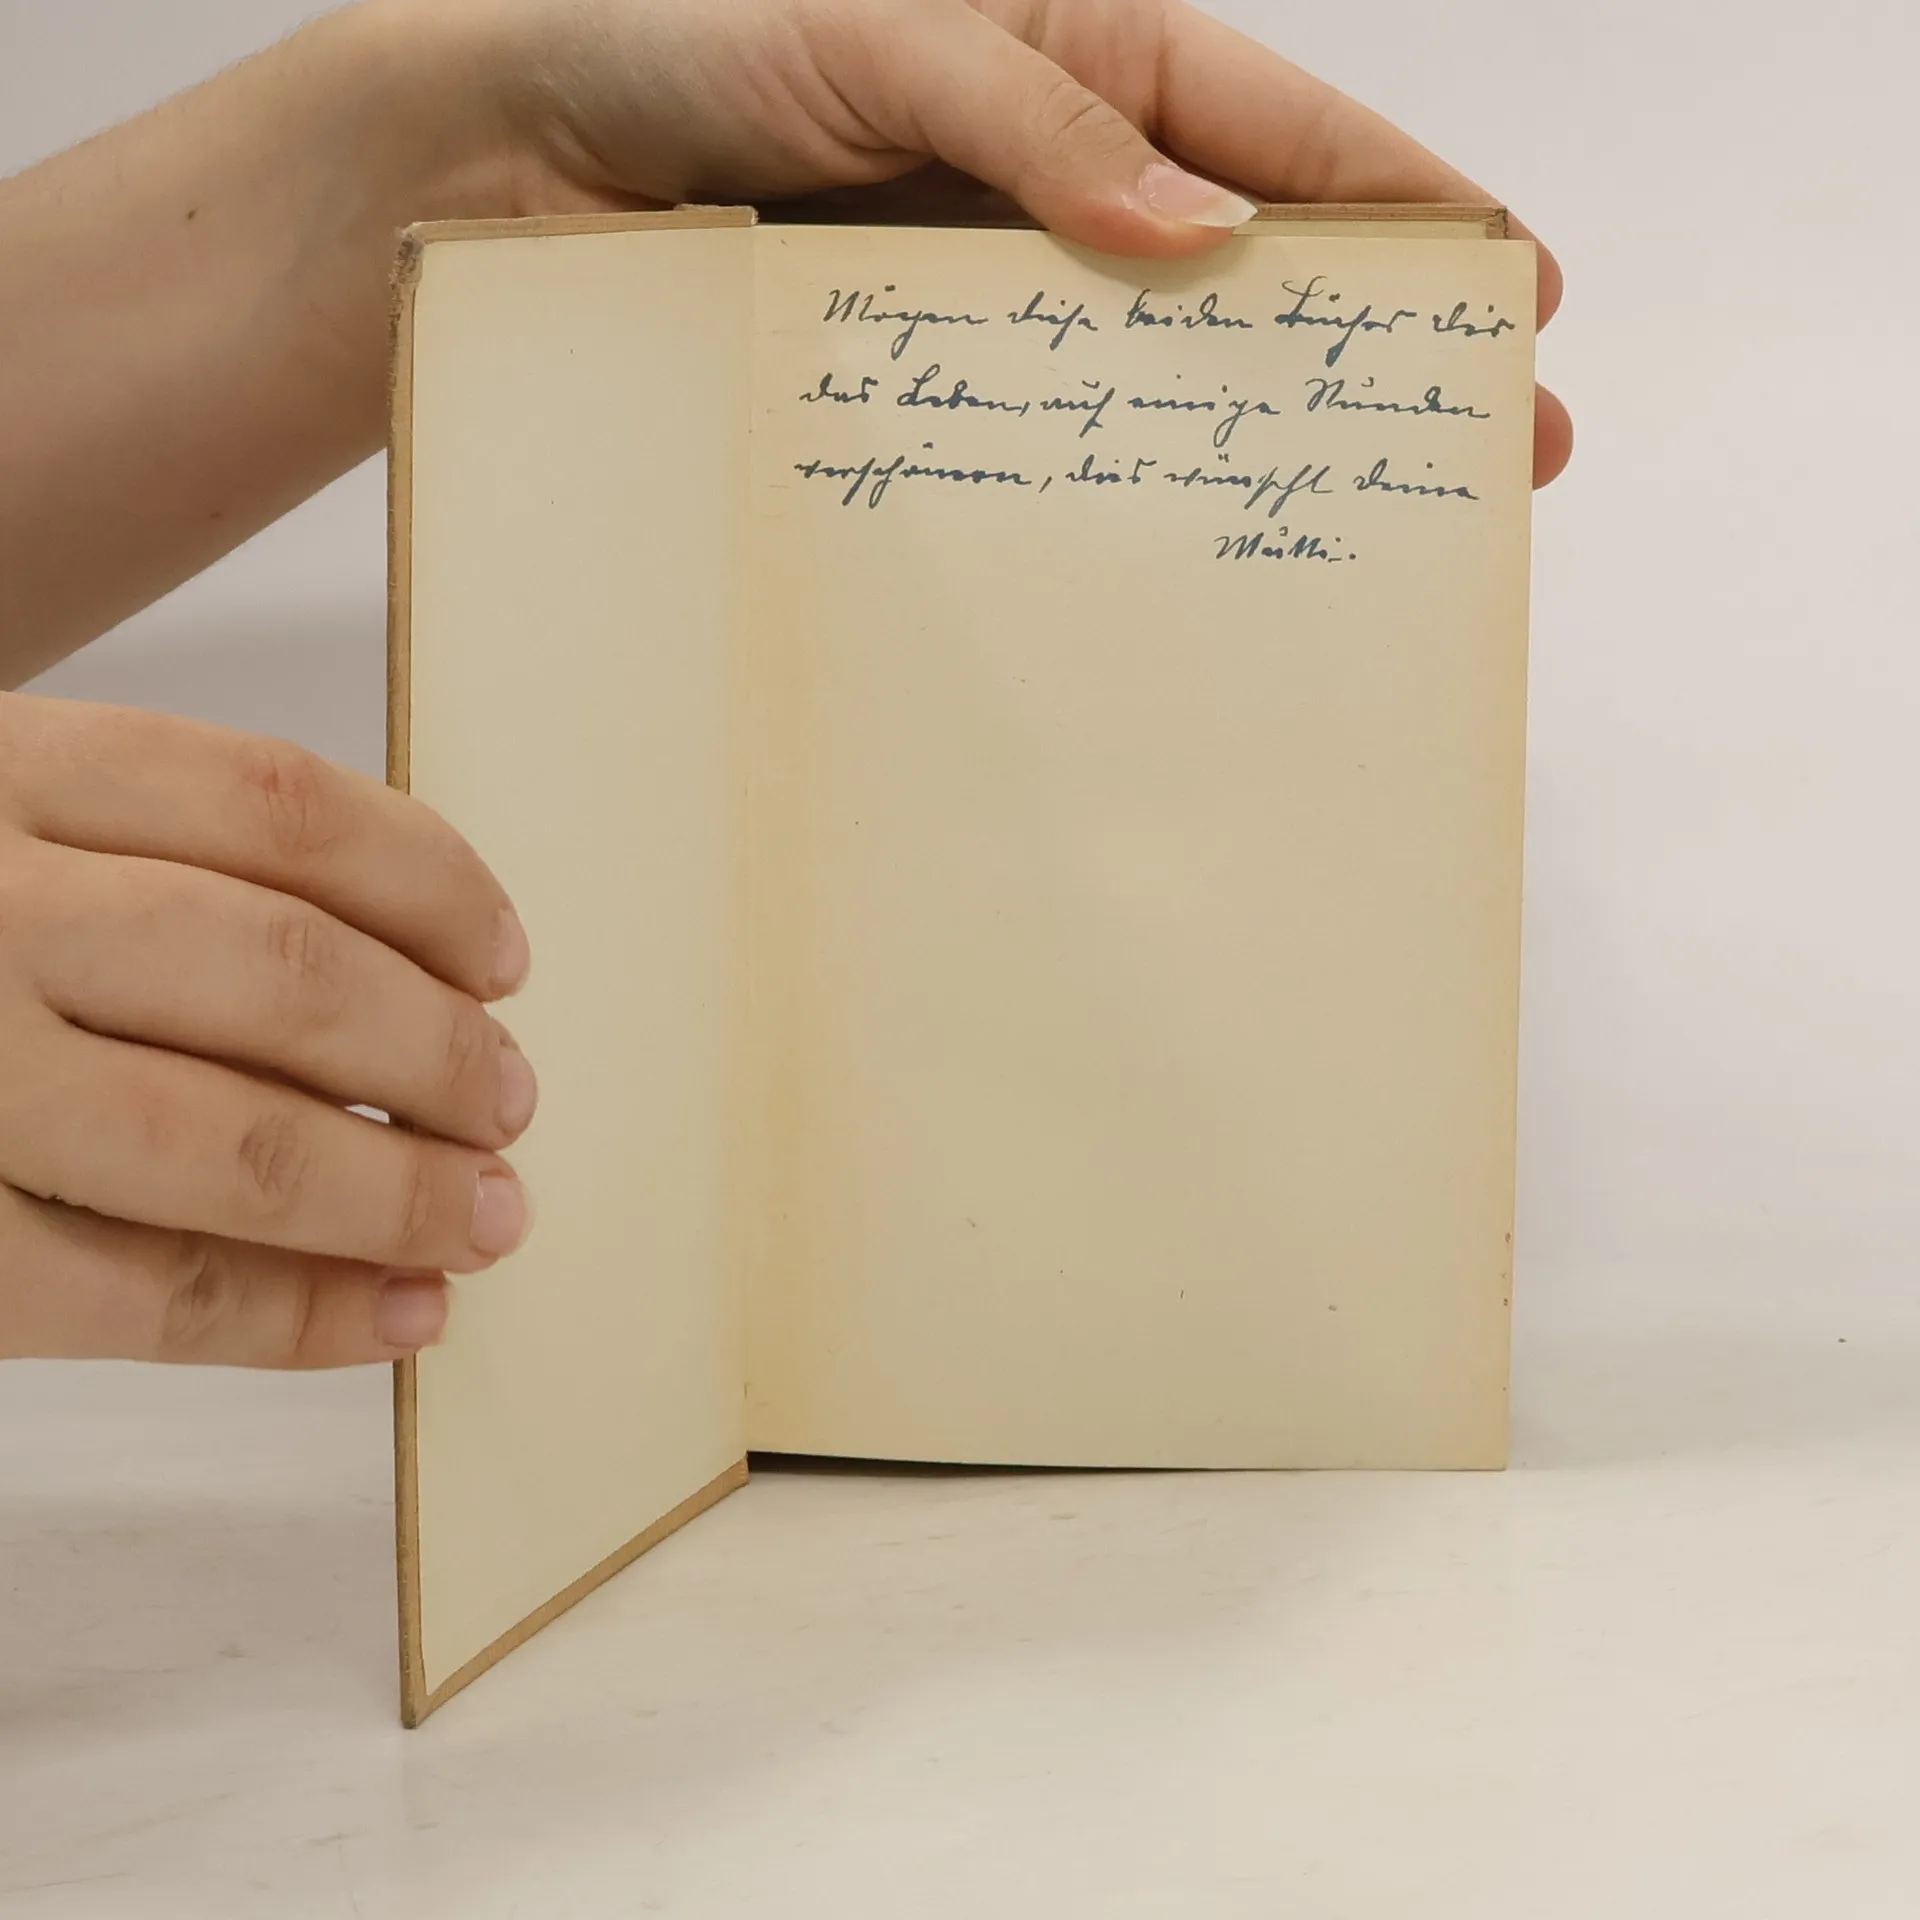 Mögen diese beiden Bücher dir
das Leben, auf einige Stunden
verschönern, dies wünscht deine
Mutti.